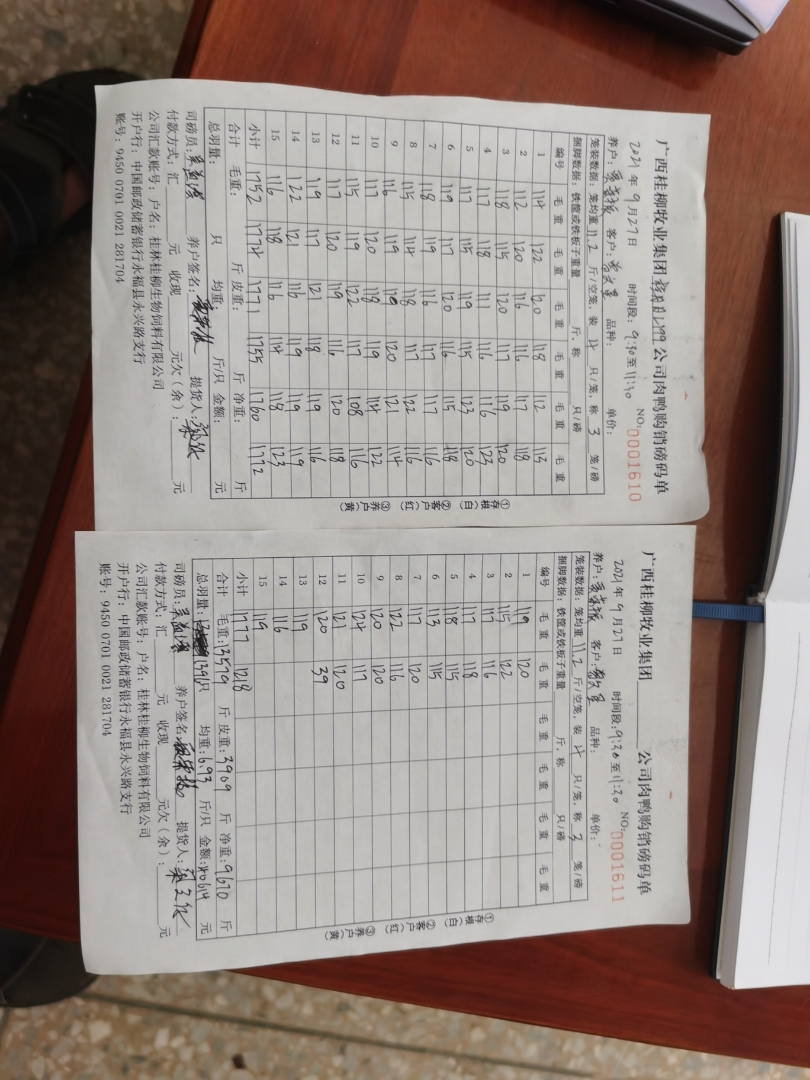 广西桂柳牧业集团 公司肉鸭购销磅码单
2021年9月27日 时间段:9:30至11:30 NO:0001610
养户: 客户: 品种: 单价:
笼装数据:笼均重11.2斤/空笼,装4只/笼,称3笼/磅
捆脚数据:铁筐或铁板子重量 斤,称 只/磅
编号 毛重 毛重 毛重 毛重 毛重 毛重
1 114 122 120 118 112 113
2 112 120 116 116 117 118
3 118 115 120 117 119 120
4 117 118 111 116 116 123
5 117 115 119 115 123 120
6 119 117 120 116 115 118
7 118 119 116 117 117 116
8 115 114 118 117 122 116
9 116 119 119 120 121 114
10 117 120 118 119 114 122
11 115 119 122 117 108 116
12 117 120 119 116 120 118
13 119 117 121 118 119 116
14 122 121 116 119 119 119
15 116 118 116 114 118 123
小计 1752 1774 1771 1755 1760 1772
合计 毛重: 斤 皮重: 斤 净重: 斤
总羽量: 只 均重: 斤/只 金额: 元
司磅员: 养户签名: 提货人:
付款方式:汇 元 收现 元欠(余): 元
公司汇款账号:户名:桂林桂柳生物饲料有限公司
开户行:中国邮政储蓄银行永福县永兴路支行
账号:9450 0701 0021 281704
①存根(白) ②客户(红) ③养户(黄)
广西桂柳牧业集团 公司肉鸭购销磅码单
2021年9月27日 时间段:9:30至11:30 NO:0001611
养户: 客户: 品种: 单价:
笼装数据:笼均重11.2斤/空笼,装4只/笼,称3笼/磅
捆脚数据:铁筐或铁板子重量 斤,称 只/磅
编号 毛重 毛重 毛重 毛重 毛重 毛重
1 119 120
2 115 122
3 117 116
4 117 118
5 118 115
6 113 115
7 117 120
8 122 116
9 120 120
10 124 117
11 121 120
12 120 39
13 119
14 116
15 119
小计 1777 1218
合计 毛重:13579斤 皮重:3909斤 净重:9670斤
总羽量:1396只 均重:6.93斤/只 金额:40614元
司磅员: 养户签名: 提货人:
付款方式:汇 元 收现 元欠(余): 元
公司汇款账号:户名:桂林桂柳生物饲料有限公司
开户行:中国邮政储蓄银行永福县永兴路支行
账号:9450 0701 0021 281704
①存根(白) ②客户(红) ③养户(黄)